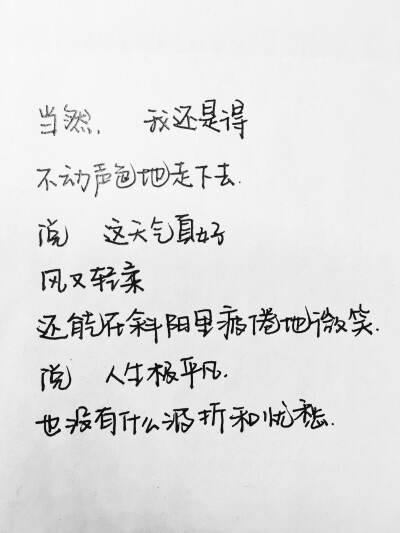 当然, 我还是得
不动声色地走下去.
说 这天气真好
风又轻柔
还能在斜阳里疲倦地微笑.
说 人生极平凡.
也没有什么波折和忧愁.